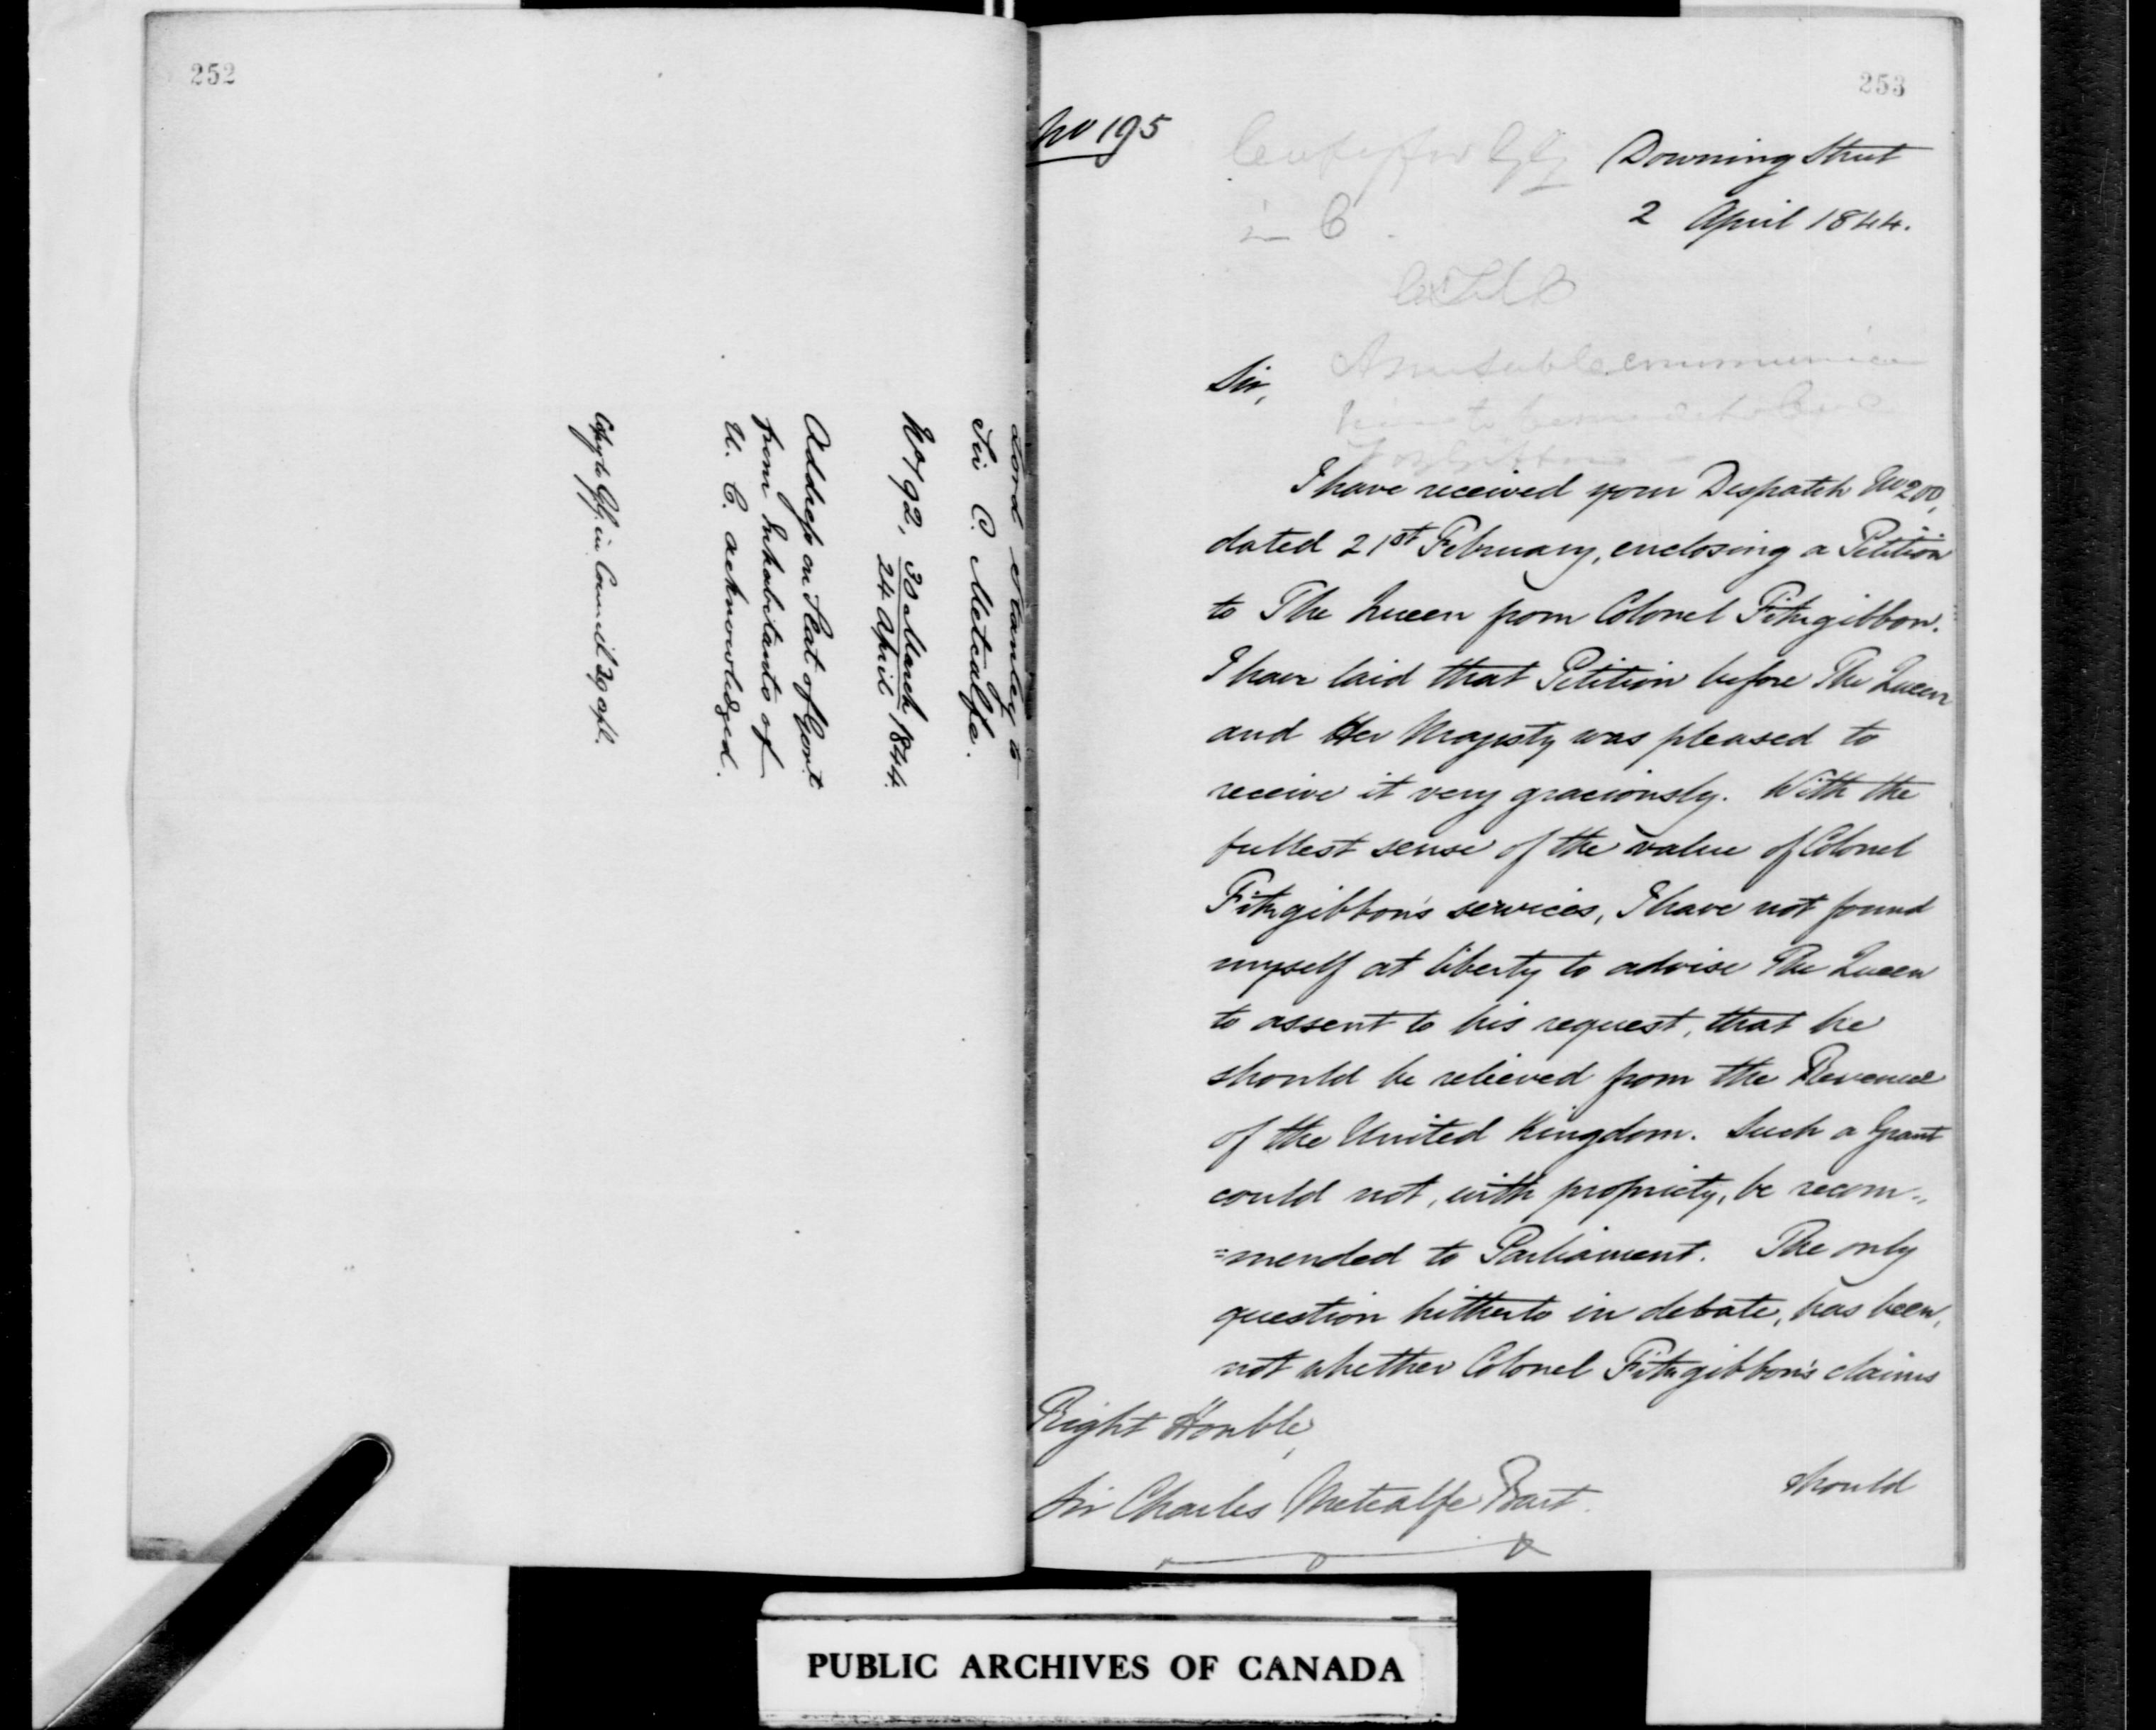 252
Lord Stanley to
Sir C. Metcalfe.
No 192, 30 March 1844
24 April
Address on Seat of Govnt
from Inhabitants of
U. C. acknowledged.
Copy to in Council 29 apl.
253
No 195
Downing Street
2 April 1844.
in C.
Sir,
A suitable communica
Fitzgibbon
I have received your Despatch No 200,
dated 21st February, enclosing a Petition
to The Queen from Colonel Fitzgibbon.
I have laid that Petition before The Queen
and Her Majesty was pleased to
receive it very graciously. With the
fullest sense of the value of Colonel
Fitzgibbon's services, I have not found
myself at liberty to advise The Queen
to assent to his request, that he
should be relieved from the Revenue
of the United Kingdom. Such a Grant
could not, with propriety, be recom=
=mended to Parliament. The only
question hitherto in debate, has been,
not whether Colonel Fitzgibbon's claims
Right Honble
Sir Charles Metcalfe Bart.
should
PUBLIC ARCHIVES OF CANADA